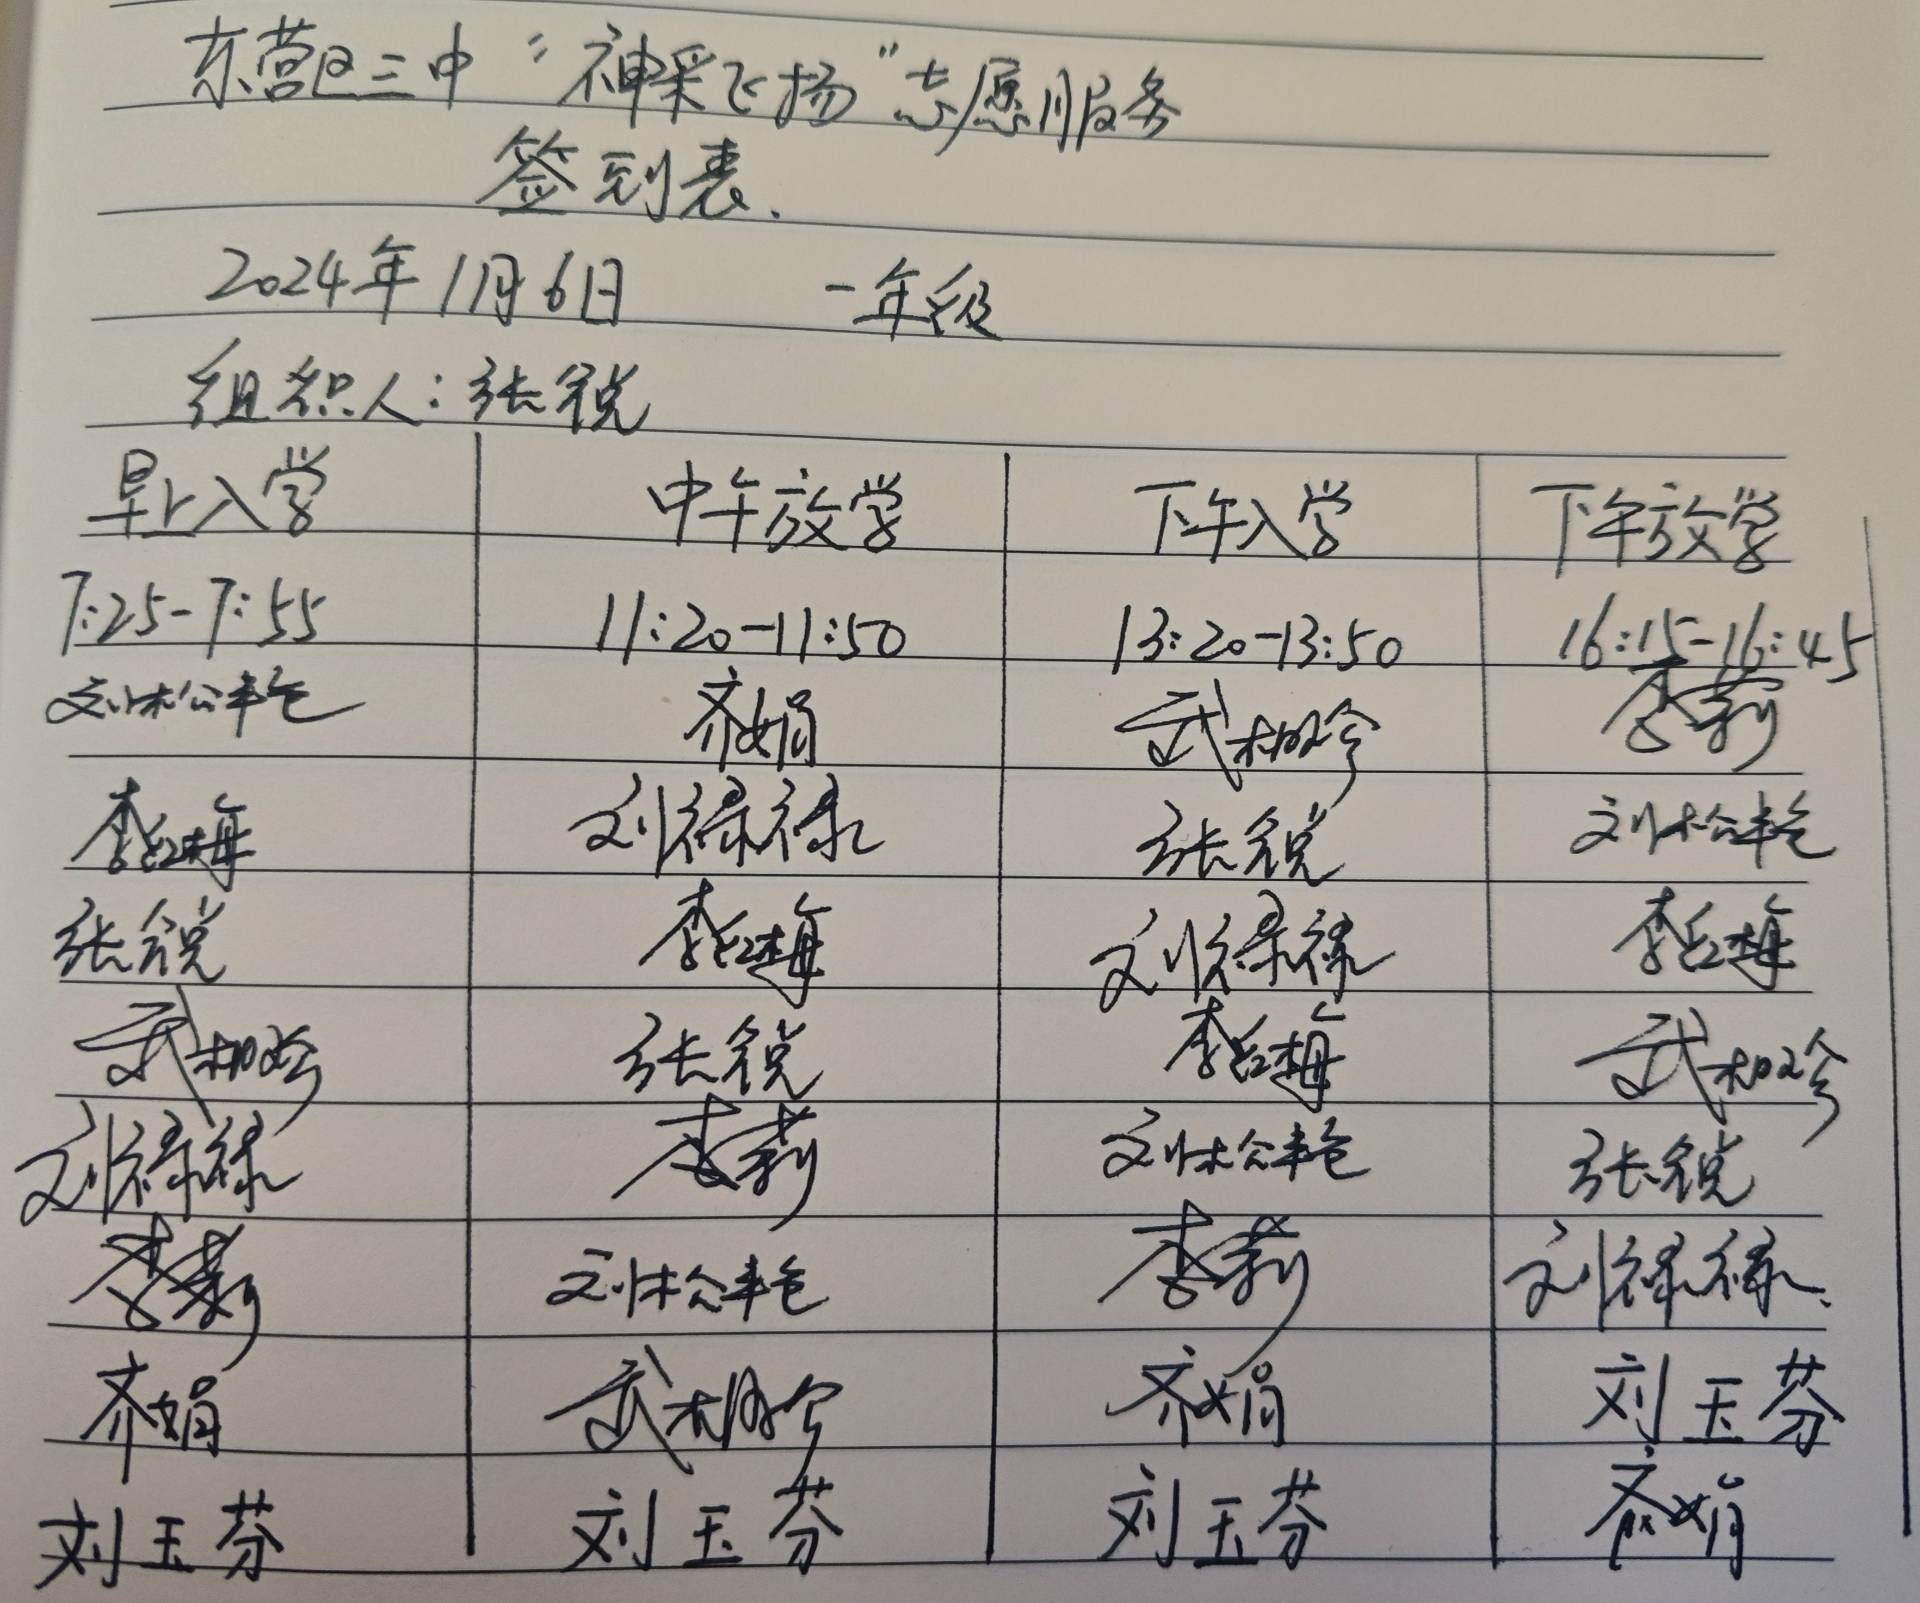 东营区三中“神采飞扬”志愿服务
签到表.
2024年11月6日 一年级
组织人:张锐
早上入学 中午放学 下午入学 下午放学
7:25-7:55 11:20-11:50 13:20-13:50 16:15-16:45
刘松艳 齐娟 武相珍 李莉
李红梅 刘禄禄 张锐 刘松艳
张锐 李红梅 刘禄禄 李红梅
武相珍 张锐 李红梅 武相珍
刘禄禄 李莉 刘松艳 张锐
李莉 刘松艳 李莉 刘禄禄.
齐娟 武相珍 齐娟 刘玉芬
刘玉芬 刘玉芬 刘玉芬 齐娟